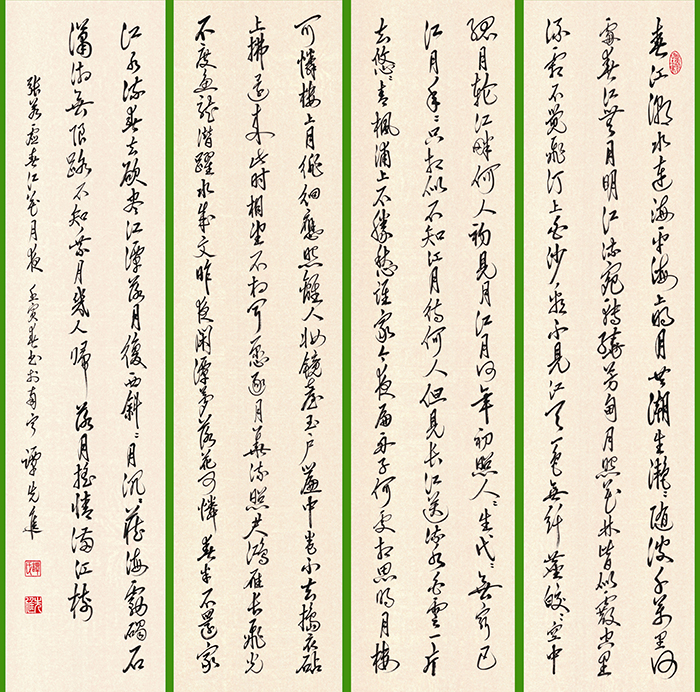 春江潮水連海平海上明月共潮生灧〻随波千万里何
處春江無月明江流宛轉繞芳甸月照花林皆似霰空里
流霜不覺飛汀上白沙看不見江天一色無纤塵皎〻空中
孤月轮江畔何人初見月江月何年初照人〻生代〻無穷已
江月年〻只相似不知江月待何人但見長江送流水白雲一片
去悠〻青楓浦上不勝愁誰家今夜扁舟子何處相思明月樓
可憐樓上月徘徊應照離人妝鏡臺玉户簾中卷不去搗衣砧
上拂還来此时相望不相闻愿逐月華流照君鴻雁长飛光
不度魚龍潜躍水成文昨夜闲潭夢落花可憐春半不還家
江水流春去欲尽江潭落月復西斜〻月沉〻藏海霧碣石
瀟湘無限路不知乘月幾人歸 落月摇情满江樹
張若虚春江花月夜 壬寅春书於南宁 譚先